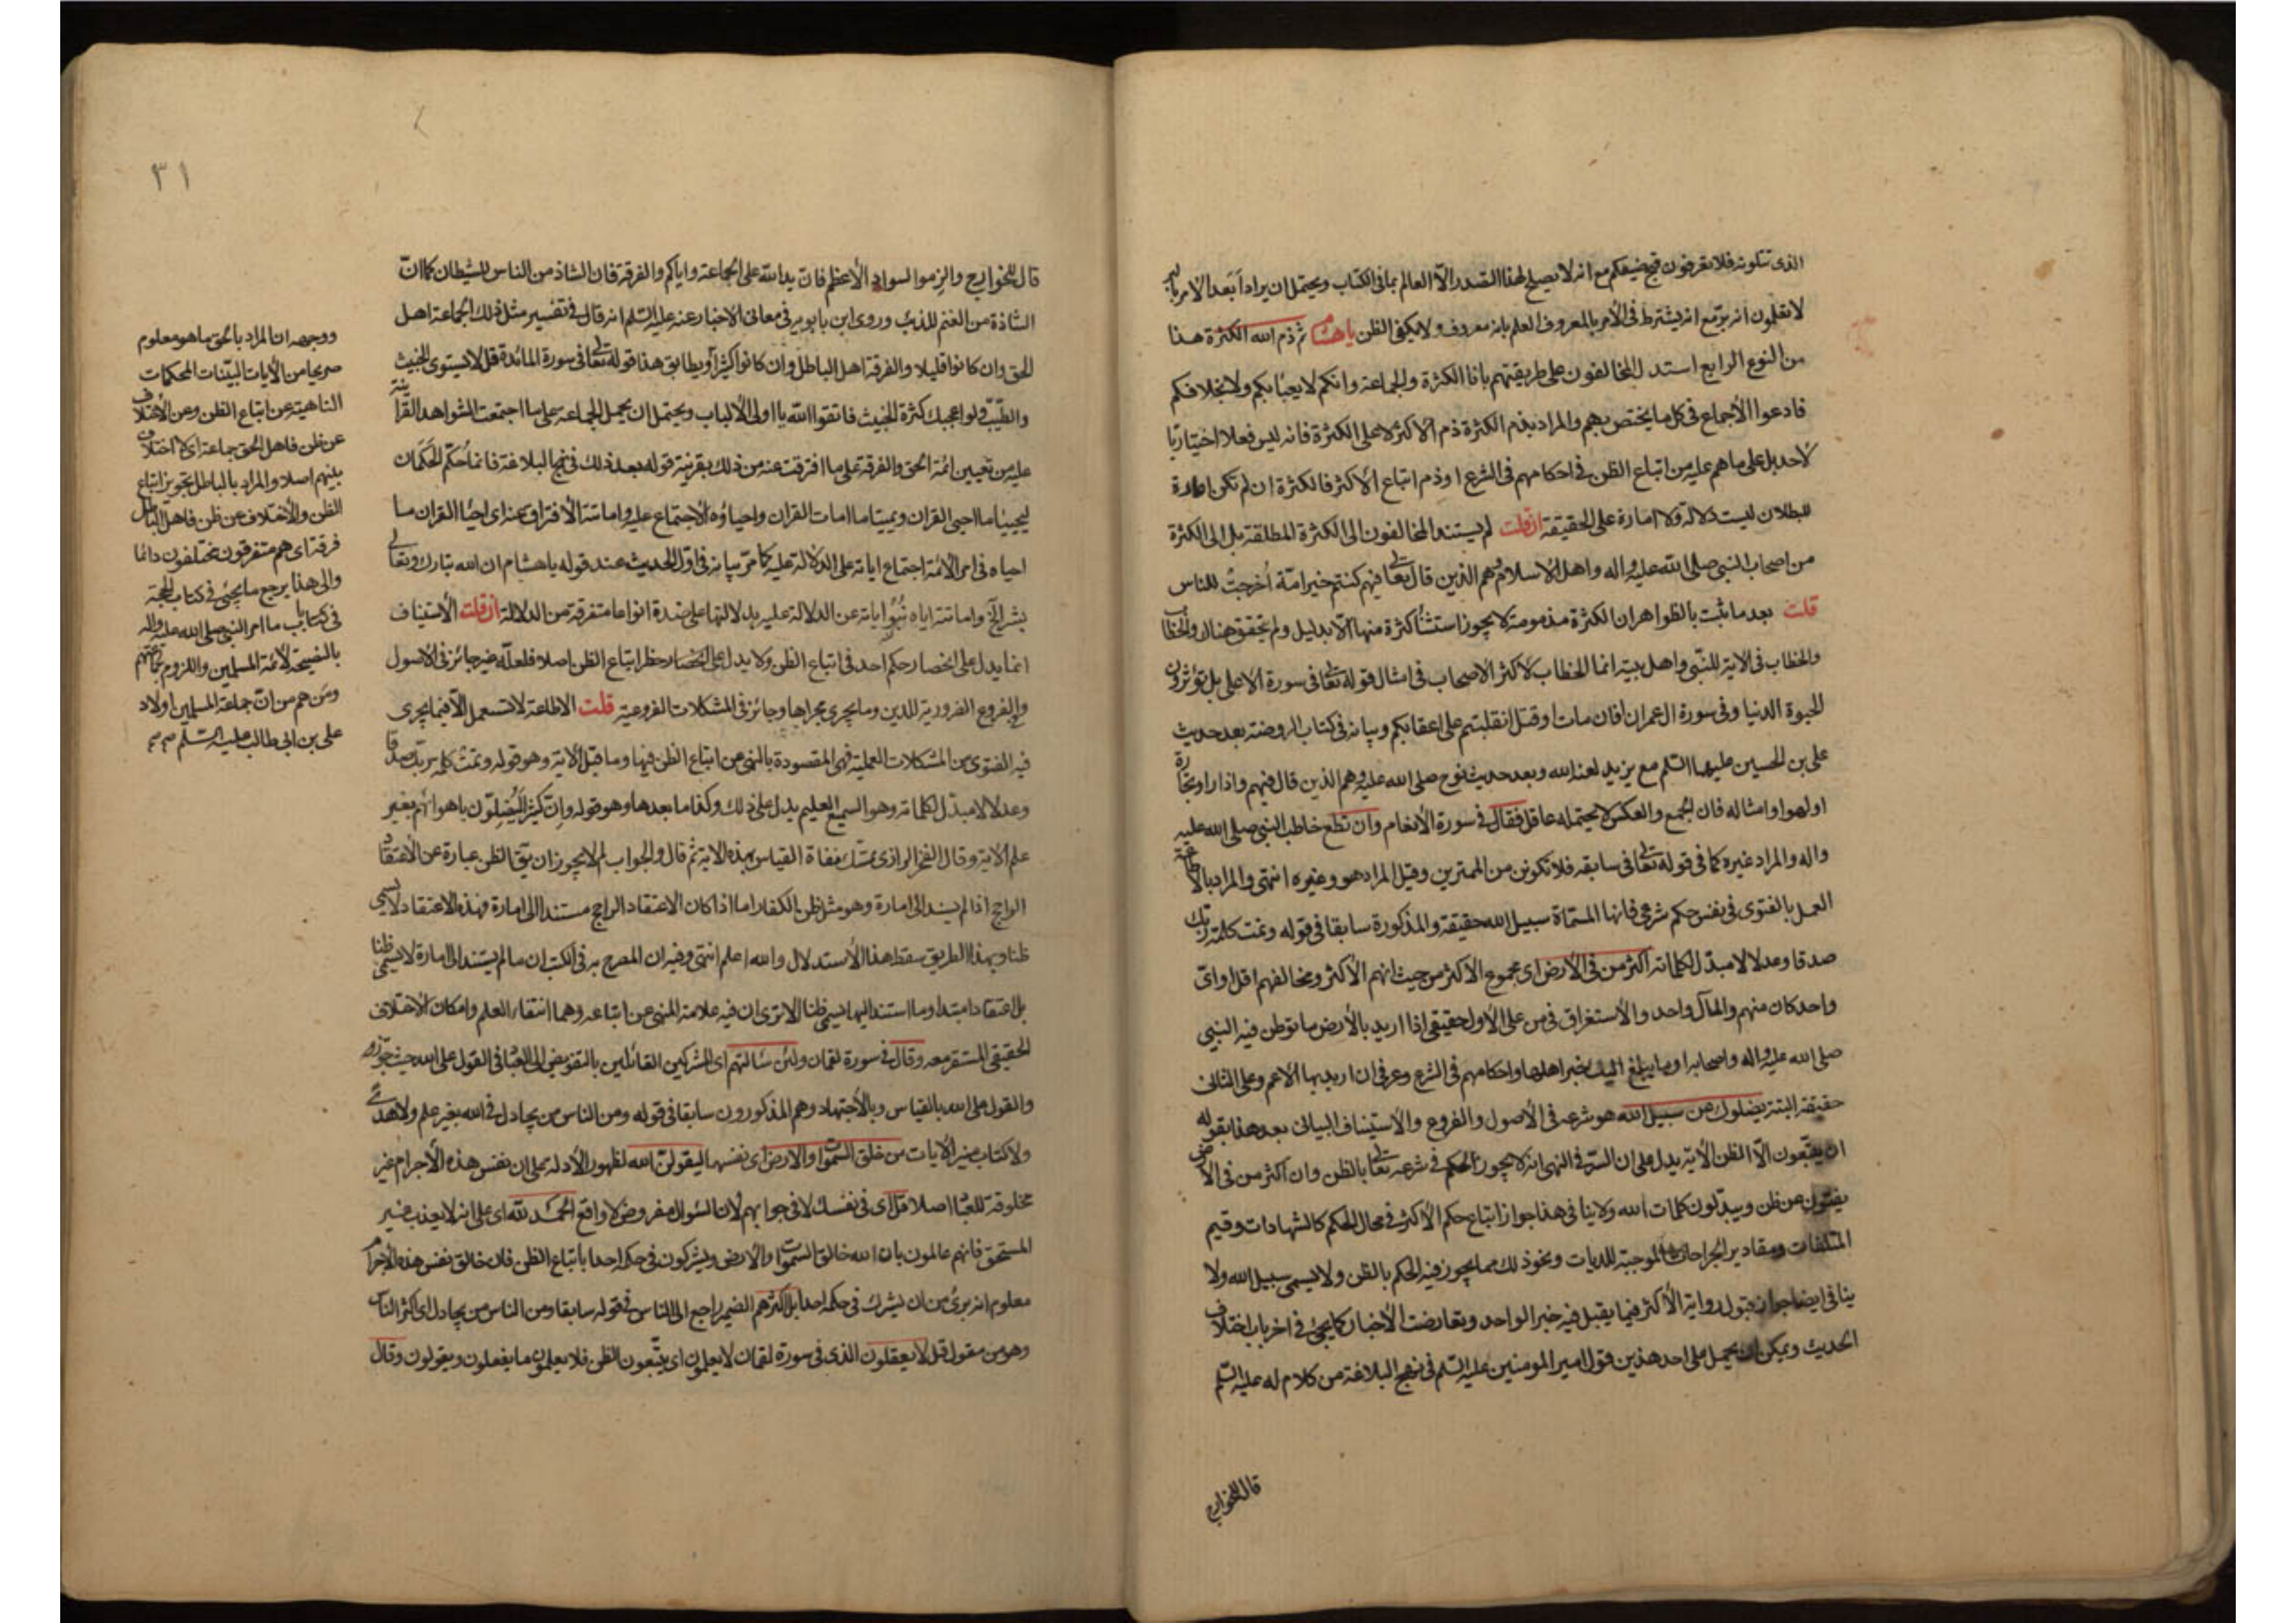 الذى تتلونه فلا تعرفون قبح صنيعكم مع انه لا يصلح لهذا التصدر الا العالم بما فى الكتاب ويحتمل ان يراد ابعد الامر بالبر
لا تعقلون انه بر مع انه يشترط فى الأمر بالمعروف العلم بانه معروف ولا يكفى الظن يا هشام ثم ذم الله الكثرة هذا
من النوع الرابع استدل المخالفون على طريقتهم بانا الكثرة والجماعة وانكم لا يعبأ بكم ولا بخلافكم
فادعوا الأجماع فى كل ما يختص بهم والمراد بذم الكثرة ذم الأكثر لا على الكثرة فانه ليس فعلا اختياريا
لأحد بل على ما هم عليه من اتباع الظن فى احكامهم فى الشرع او ذم اتباع الأكثر فالكثرة ان لم تكن امارة
للبطلان ليست دلالة ولا امارة على الحقيقة ان قلت لم يستند المخالفون الى الكثرة المطلقة بل الى الكثرة
من اصحاب النبى صلى الله عليه واله واهل الاسلام وهم الذين قال تعالى فيهم كنتم خير امة أخرجت للناس
قلت بعد ما ثبت بالظواهر ان الكثرة مذمومة لا يجوز استثناء كثرة منها الا بدليل ولم يتحقق هناك والخطاب
والخطاب فى الاية للنبى واهل بيته انما الخطاب لأكثر الاصحاب فى امثال قوله تعالى فى سورة الاعلى بل تؤثرون
الحيوة الدنيا وفى سورة ال عمران افان مات او قتل انقلبتم على اعقابكم وبيانه فى كتاب الروضة بعد حديث
على بن الحسين عليهما السلم مع يزيد لعنه الله وبعد حديث نوح صلى الله عليه وهم الذين قال فيهم واذا راوا تجارة
او لهوا وامثاله فان الجمع والعكس لا يحتمله عاقل فقال فى سورة الأنعام وان تطع خاطب النبى صلى الله عليه
واله والمراد غيره كما فى قوله تعالى فى سابقه فلا تكونن من الممترين وقيل المراد هو وغيره انتهى والمراد بالاطاعة
العمل بالفتوى فى نفس حكم شرعى فانها المسماة سبيل الله حقيقة والمذكورة سابقا فى قوله وتمت كلمة ربك
صدقا وعدلا لا مبدل لكلماته اكثر من فى الأرض اى مجموع الأكثر من حيث انهم الأكثر ومخالفهم اقل او اى
واحد كان منهم والمآل واحد والأستغراق فى من على الأول حقيقى اذا اريد بالأرض ما توطن فيه النبى
صلى الله عليه واله واصحابه او ما يبلغ اليك خبر اهلها واحكامهم فى الشرع وعرفى ان اريد بها الأعم وعلى الثانى
حقيقة البتة يضلوك عن سبيل الله هو شرعه فى الأصول والفروع والأستيناف البيانى بعد هذا بقوله
ان يتبعون الا الظن الأية يدل على ان السر فى النهى انه لا يجوز الحكم فى شرعه تعالى بالظن وان اكثر من فى الأرض
يفتون عن ظن ويبدلون كلمات الله ولا ينافى هذا جواز اتباع حكم الأكثر فى محال الحكم كالشهادات وقيم
المتلفات ومقادير الجراحات الموجبة للديات ونحو ذلك مما يجوز فيه الحكم بالظن ولا يسمى سبيل الله ولا
ينافى ايضا جواز قبول رواية الأكثر فيما يقبل فيه خبر الواحد وتعارضت الأخبار كما يجئ فى اخر باب اختلاف
الحديث ويمكن ان يحمل على احد هذين قول امير المومنين عليه السلم فى نهج البلاغة من كلام له عليه السلم
قال للخوارج
٣١
قال للخوارج والزموا السواد الأعظم فان يد الله على الجماعة واياكم والفرقة فان الشاذ من الناس للشيطان كما ان
الشاذة من الغنم للذئب وروى ابن بابويه فى معانى الاخبار عنه عليه السلم انه قال فى تفسير مثل ذلك الجماعة اهل
الحق وان كانوا قليلا والفرقة اهل الباطل وان كانوا كثيرا ويطابق هذا قوله تعالى فى سورة المائدة قل لا يستوى الخبيث
والطيب ولو اعجبك كثرة الخبيث فاتقوا الله يا اولى الألباب ويحتمل ان يحمل الجماعة على ما اجتمعت الشواهد القرآنية
عليه من تعيين ائمة الحق والفرقة على ما افترقت عنه من ذلك بقرينة قوله بعد ذلك فى نهج البلاغة فانما حكم الحكمان
ليحييا ما احيى القران ويميتا ما امات القران واحياؤه الأجتماع عليه واماتته الأفتراق عنه اى احياء القران ما
احياه فى امر الأئمة اجتماع اياته على الدلالة عليه كما مر بيانه فى اول الحديث عند قوله يا هشام ان الله تبارك وتعالى
بشر الخ واماتته اياه نبو اياته عن الدلالة عليه بدلالتها على ضده انواعا متفرقة من الدلالة ان قلت الأستيناف
انما يدل على انحصار حكم احد فى اتباع الظن ولا يدل على انحصار حظر اتباع الظن اصلا فلعله غير جائز فى الأصول
والفروع الضرورية للدين وما يجرى مجراها وجائز فى المشكلات الفروعية قلت الاطاعة لا تستعمل الا فيما يجرى
فيه الفتوى من المشكلات العملية فهى المقصودة بالنهى عن اتباع الظن فيها وما قبل الأية وهو قوله وتمت كلمة ربك صدقا
وعدلا لا مبدل لكلماته وهو السميع العليم يدل على ذلك وكذا ما بعدها وهو قوله وان كثيرا ليضلون باهوائهم بغير
علم الأية وقال الفخر الرازى تمسك نفاة القياس بهذه الاية ثم قال والجواب لم لا يجوز ان يق الظن عبارة عن الأعتقاد
الراجح اذا لم يستند الى امارة وهو مثل ظن الكفار اما اذا كان الاعتقاد الراجح مستندا الى امارة فهذه الاعتقاد لا يسمى
ظنا وبهذا الطريق سقط هذا الأستدلال والله اعلم انتهى وفيه ان المصرح به فى الكتب ان ما لم يستند الى امارة لا يسمى ظنا
بل اعتقادا مبتدا وما استند اليها يسمى ظنا الا ترى ان فيه علامة المنهى عن اتباعه وهما انتفاء العلم وامكان الأختلاف
الحقيقى المستقر معه وقال فى سورة لقمان ولئن سألتهم اى المشركين القائلين بالتفويض الى العباد فى القول على الله حيث جوزوه
والقول على الله بالقياس وبالأجتهاد وهم المذكورون سابقا فى قوله ومن الناس من يجادل فى الله بغير علم ولا هدى
ولا كتاب منير الأيات من خلق السموات والارض اى نفسها ليقولن الله لظهور الأدلة على ان نفس هذه الأجرام غير
مخلوقة للعباد اصلا قل اى فى نفسك لا فى جوابهم لأن السؤال مفروض لا واقع الحمد لله اى على انه لا يعذب غير
المستحق فانهم عالمون بان الله خالق السموات والأرض ويشركون فى حكمه احدا باتباع الظن فان خالق نفس هذه الأجرام
معلوم انه برئ من ان يشرك فى حكمه احدا بل اكثرهم الضمير راجع الى الناس فى قوله سابقا ومن الناس من يجادل اى اكثر الناس
وهو من مقول قل لا يعقلون الذى فى سورة لقمان لا يعلمون اى يتبعون الظن فلا يعلمون ما يفعلون ويقولون وقال
ووجهه ان المراد بالحق ما هو معلوم
صريحا من الأيات البينات المحكمات
الناهية عن اتباع الظن وعن الأختلاف
عن ظن فاهل الحق جماعة اى لا اختلاف
بينهم اصلا والمراد بالباطل تجويز اتباع
الظن والأختلاف عن ظن فاهل الباطل
فرقة اى هم متفرقون مختلفون دائما
والى هذا يرجع ما يجئ فى كتاب الحجة
فى باب ما امر النبى صلى الله عليه واله
بالنصيحة لأئمة المسلمين واللزوم لجماعتهم
ومن هم من ان جماعة المسلمين اولاد
على بن ابى طالب عليه السلم